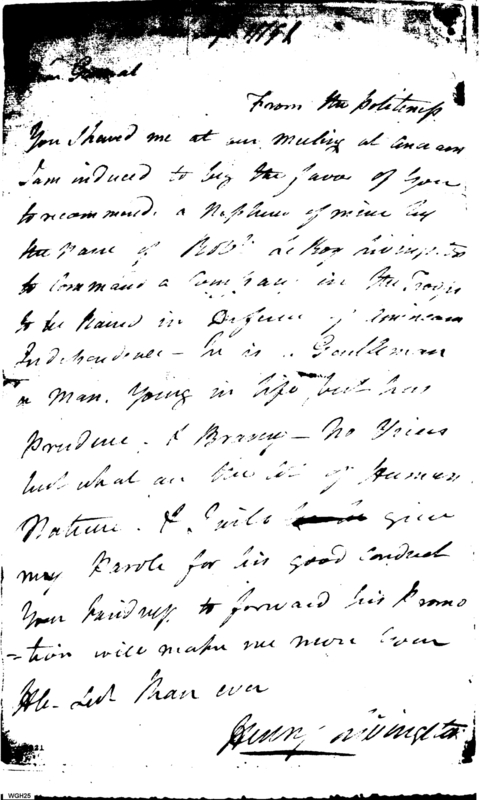 General
From the politeness
You Shewed me at our meeting at
I am induced to beg the favor of You
to recommend. a Nephew of mine by
the Name of Robt. Le Roy Livingston
to Command a Company in the Troops
to be Raised in Defence of American
Independence - he is a Gentleman
a Man. Young in life but has
Prudence. & Bravery - No Vices
but what are the lot of Human
Nature. & I will give
my Parole for his good Conduct
Your kindness to forward his Promo
=tion will make me more
than ever
Henry Livingston
WGH25